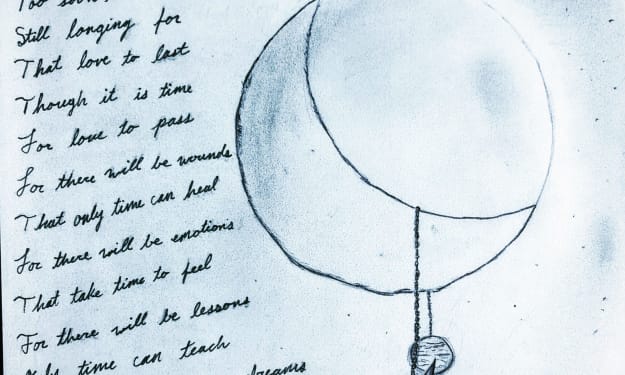 Too soon
Still longing for
That love to last
Though it is time
For love to pass
For there will be wounds
That only time can heal
For there will be emotions
That take time to feel
For there will be lessons
Only time can teach
dreams